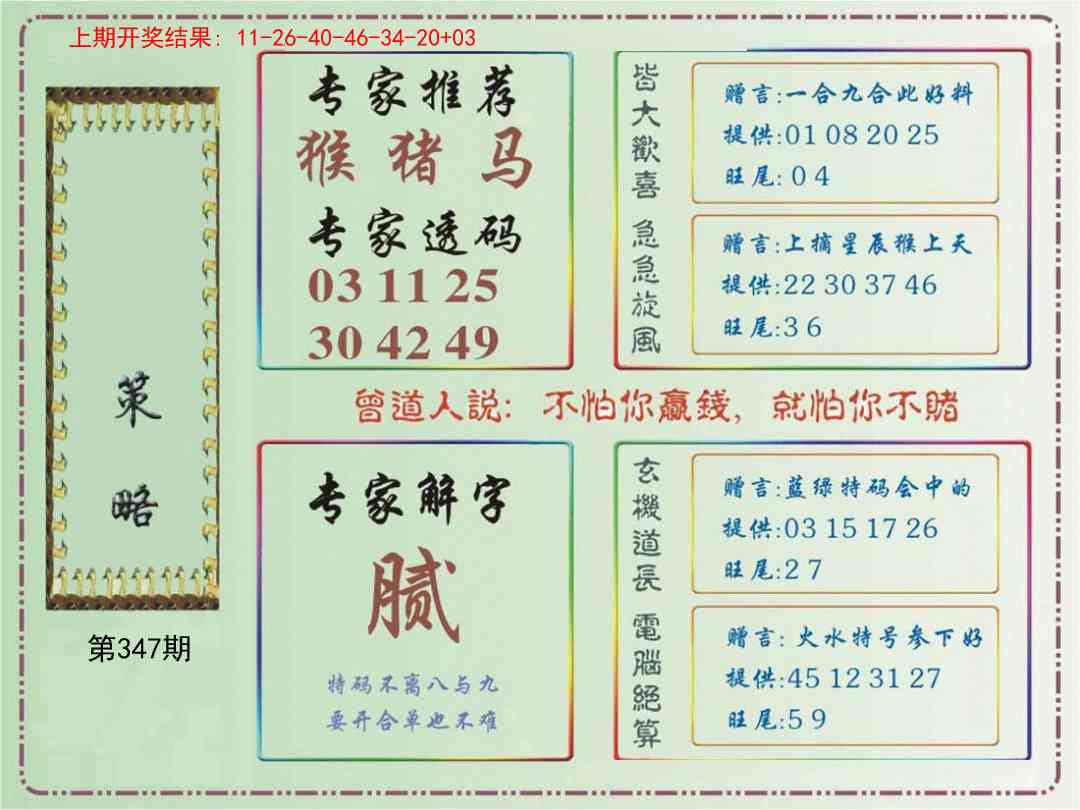 上期开奖结果: 11-26-40-46-34-20+03
策略
第347期
专家推荐
猴 猪 马
专家透码
03 11 25
30 42 49
皆大歡喜
赠言:一合九合此好料
提供:01 08 20 25
旺尾:0 4
急急旋風
赠言:上摘星辰猴上天
提供:22 30 37 46
旺尾:3 6
曾道人説: 不怕你贏錢, 就怕你不賭
专家解字
腻
特码不离八与九
要开合单也不难
玄機道長
赠言:蓝绿特码会中的
提供:03 15 17 26
旺尾:2 7
電腦絕算
赠言: 火水特号参下好
提供:45 12 31 27
旺尾:5 9